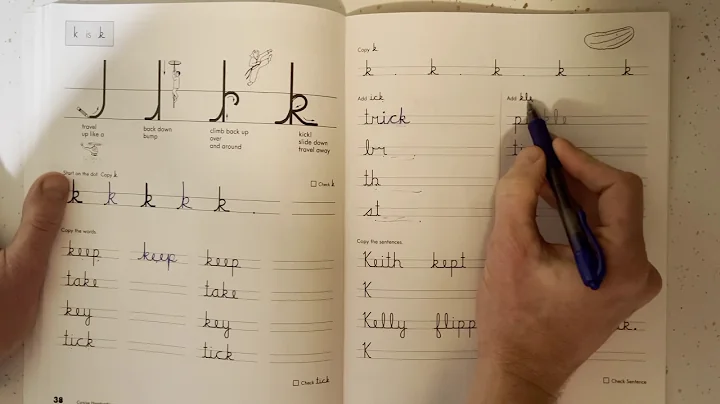 k is k
travel up like a
back down bump
climb back up over and around
kick! slide down travel away
Start on the dot. Copy k
Check k
k k k k k
Copy the words.
keep keep keep
take take
key key
tick tick
Check tick
38
Copy k
k k k k k
Add ick
trick
br
th
st
Add kle
Copy the sentences.
Keith kept
K
Kelly flipp k.
K
Check Sentence